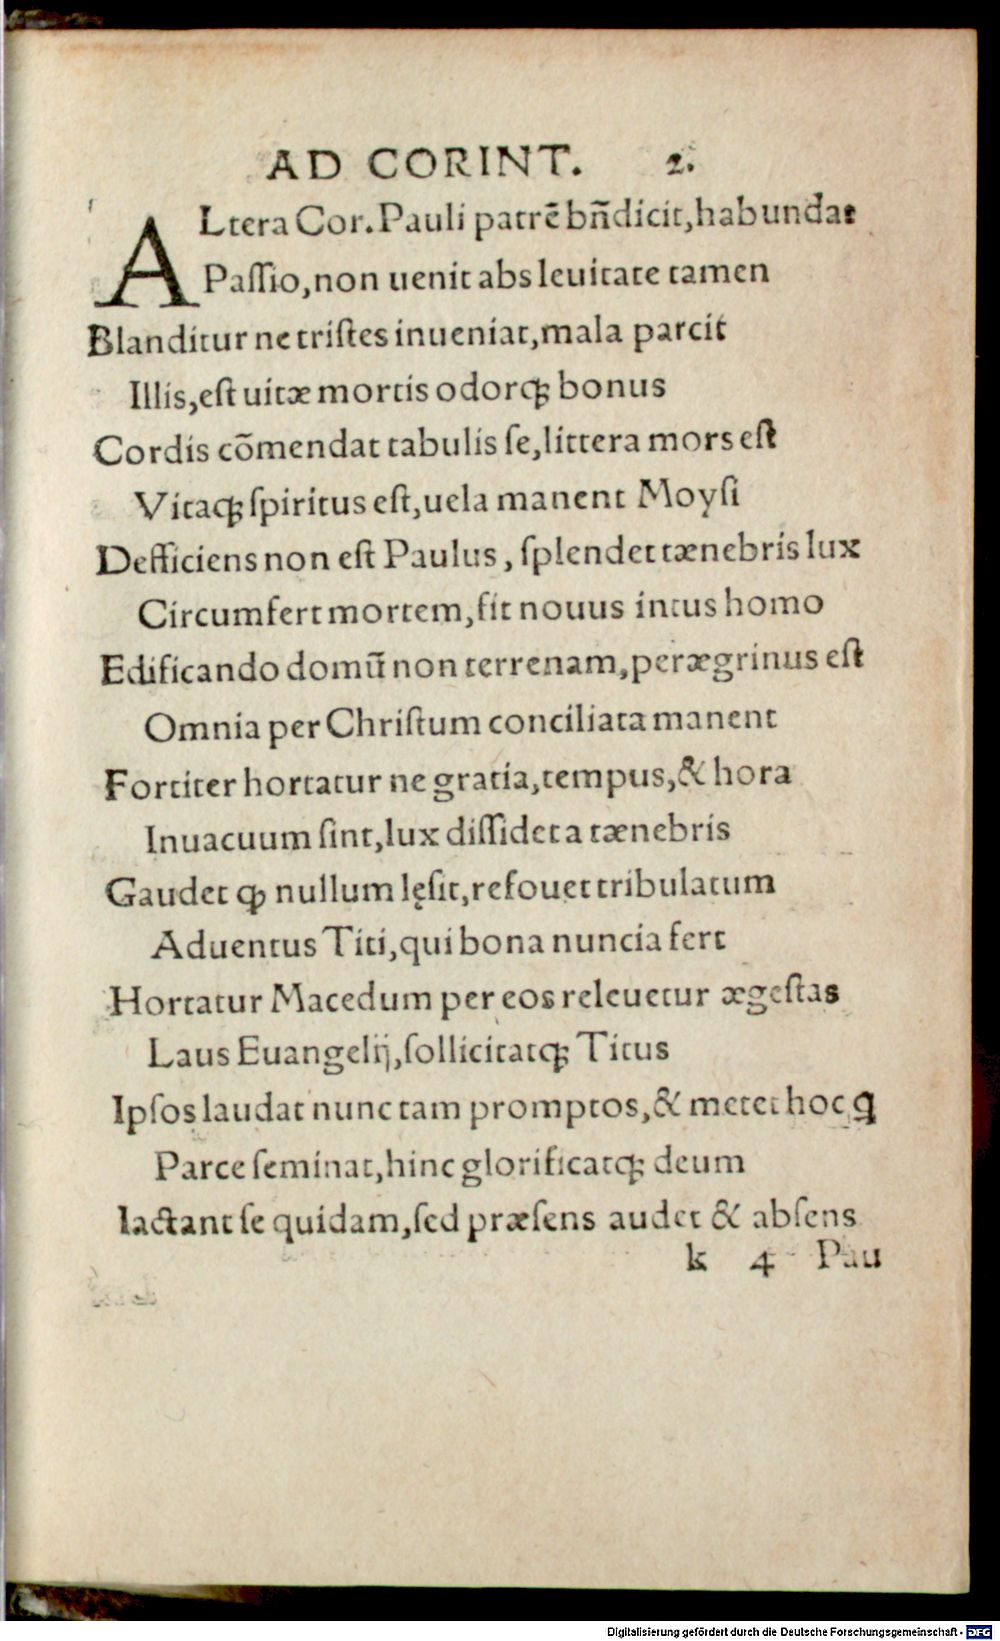 AD CORINT. 2.
ALtera Cor. Pauli patrē bn̄dicit, habundat
Paſſio, non uenit abs leuitate tamen
Blanditur ne triſtes inueniat, mala parcit
Illis, eſt uitæ mortis odorqꝫ bonus
Cordis cōmendat tabulis ſe, littera mors eſt
Vitaqꝫ ſpiritus eſt, uela manent Moyſi
Defficiens non eſt Paulus, ſplendet tænebris lux
Circumfert mortem, fit nouus intus homo
Edificando domū non terrenam, perægrinus eſt
Omnia per Chriſtum conciliata manent
Fortiter hortatur ne gratia, tempus, & hora
Inuacuum ſint, lux diſſidet a tænebris
Gaudet ꝙ nullum lęſit, refouet tribulatum
Aduentus Titi, qui bona nuncia fert
Hortatur Macedum per eos releuetur ægeſtas
Laus Euangelij, ſollicitatqꝫ Titus
Ipſos laudat nunc tam promptos, & metet hoc ꝗ
Parce ſeminat, hinc glorificatqꝫ deum
Iactant ſe quidam, ſed præſens audet & abſens
k 4 Pau
Digitalisierung gefördert durch die Deutsche Forschungsgemeinschaft - DFG